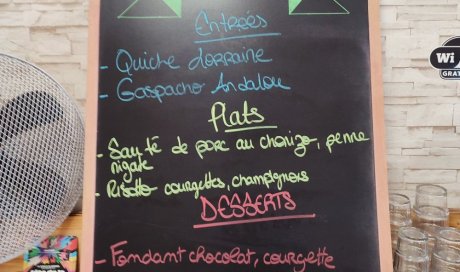 Entrées
- Quiche Lorraine
- Gaspacho Andalou
Plats
- Sauté de porc au chorizo, penne
nigate
- Risotto courgettes, champignons
DESSERTS
- Fondant chocolat, courgette
Wi
GRAT